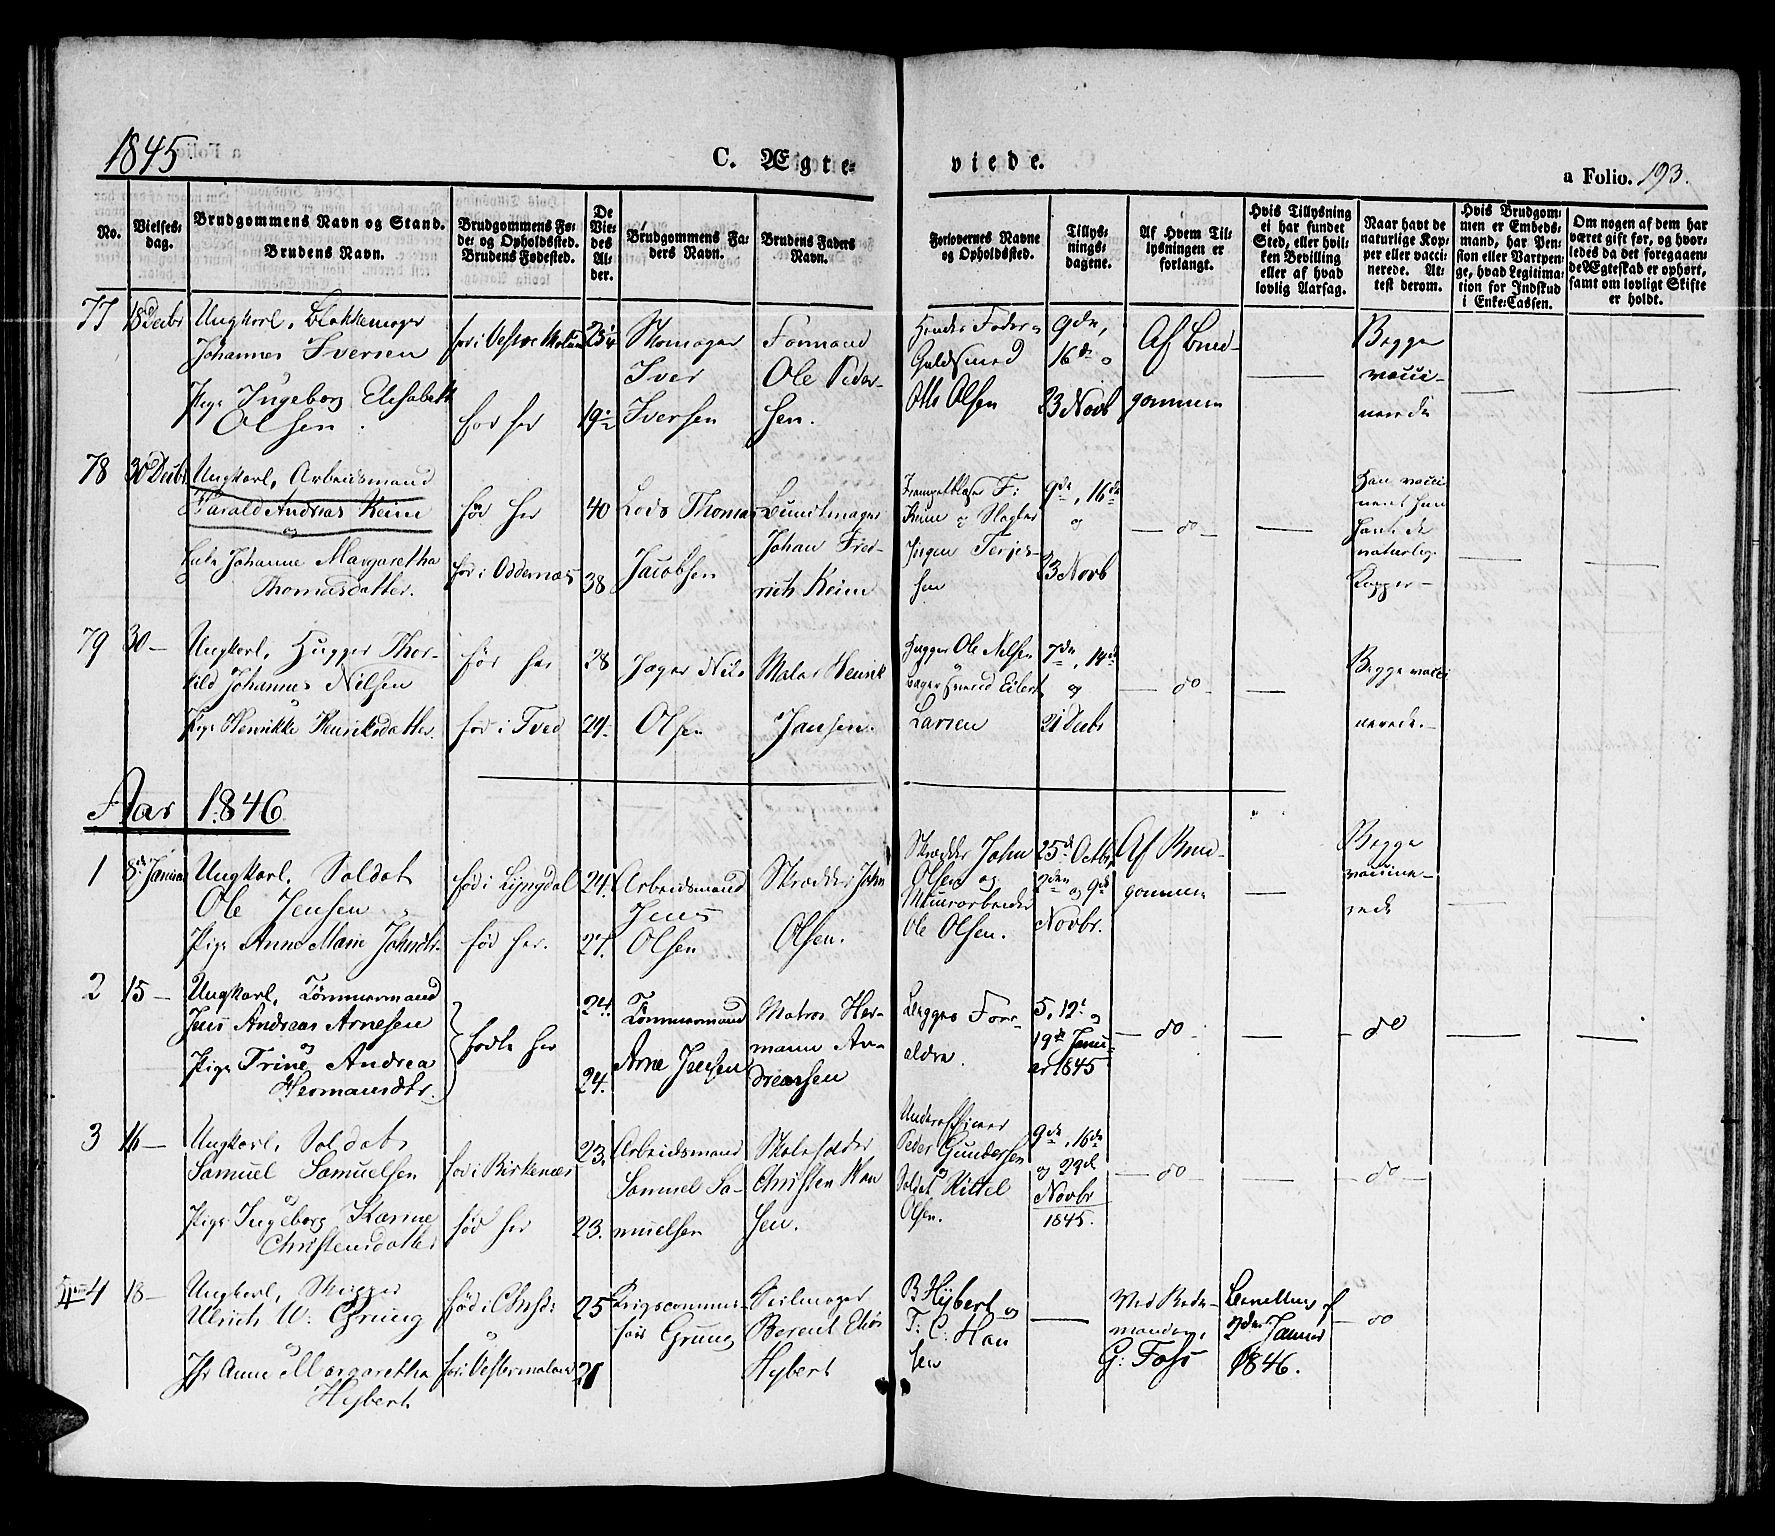 1845
C. Ægte-
viede.
a Folio. 193.
No.
Vielses-
dag.
Brudgommens Navn og Stand.
Brudens Navn.
Brudgommens Fø-
de- og Opholdssted.
Brudens Fødested.
De
Vie-
des
Al-
der.
Brudgommens Fa-
ders Navn.
Brudens Faders
Navn.
Forlovernes Navne
og Opholdssted.
Tillys-
nings-
dagene.
Af Hvem Til-
lysningen er
forlangt.
Hvis Tillysning
ei har fundet
Sted, eller hvil-
ken Bevilling
eller af hvad
lovlig Aarsag.
Naar havt de
naturlige Kop-
per eller vacci-
nerede. At-
test derom.
Hvis Brudgom-
men er Embeds-
mand, har Pen-
sion eller Vartpen-
ge, hvad Legitima-
tion for Indskud
i Enke-Cassen.
Om nogen af dem har
været gift før, og hvor-
ledes da det foregaaen-
de Ægteskab er ophørt,
samt om lovligt Skifte
er holdt.
77
18 Decbr
Ungkarl, Blokkemager
Johannes Iversen
Pige Ingeborg Elisabeth
Olsen.
fød her
Skomager
Iver
Iversen
Formand
Ole Peder-
sen.
Guldsmed
Otto Olsen
9de,
16de og
23 Novb
Af Brud-
gommen
Begge
vacci-
nerede
78
30 Decbr
Ungkarl, Arbeidsmand
Harald Andreas Keim
og
Johanne Margaretha
Thomasdatter.
fød her
fød i Oddernes
40
38
Lods Thomas
Jacobsen
Buntmager
Johan Fred-
rich Keim
Keim og Slagter
Jørgen Terjes-
sen
9de, 16de
og
23 Novb
do
Han vacci-
neret hun
havt de
naturlige
Kopper
79
30
Ungkarl, Hugger Thor-
kild Johannes Nilsen
og
Pige Henrikke Henriksdatter.
fød her
fød i Tved
28
24.
Jager Nils
Olsen
Maler Henrik
Jansen.
Hugger Ole Nilsen
Bagersvend Eilert
Larsen
7de, 14de
og
21 Decbr
do
Begge vacci
nerede.
Aar 1846
1
8de Januar
Ungkarl, Soldat
Ole Jensen
Pige Anne Marie Johnsdtr.
fød i Lyngdal
fød her.
24.
27.
Arbeidsmand
Jens
Olsen
Skrædder John
Olsen.
Skrædder John
Olsen og
Muurarbeider
Ole Olsen.
25de Octbr
2den og 9de
Novbr.
Af Brud-
gommen
Begge
vaccine-
rede
2
15
Ungkarl, Tømmermand
Jens Andreas Arnesen
og
Pige Trine Andrea
Hermansdtr.
fødte her
24.
24.
Tømmermand
Arne Jensen
Matros Her-
mann An-
dreassen
Begges For-
ældre.
5, 12te og
19de Janu-
ar 1845
do
do
3
16
Ungkarl, Soldat
Samuel Samuelsen
og
Pige Ingeborg Karine
Christensdatter
fød i Birkenæs
fød her
23.
23.
Arbeidsmand
Samuel Sa-
muelsen
Skoleholder
Christen Han
sen.
Underofficeer
Peder Gundersen
og
Soldat Kittel
Olsen.
9de, 16de
og 29de
Novbr
1845.
do
do
4
18
Ungkarl, Skipper
Ulrich W. Grung
og
Jfr Anne Margaretha
Hybert
25
21
Krigscommis-
sair Grung
Seilmager
Berent Elias
Hybert
B Hybert og
T: C: Han
sen
Ved Beder-
manden
G: Foss
Bevilling af
2den Januar
1846.
do